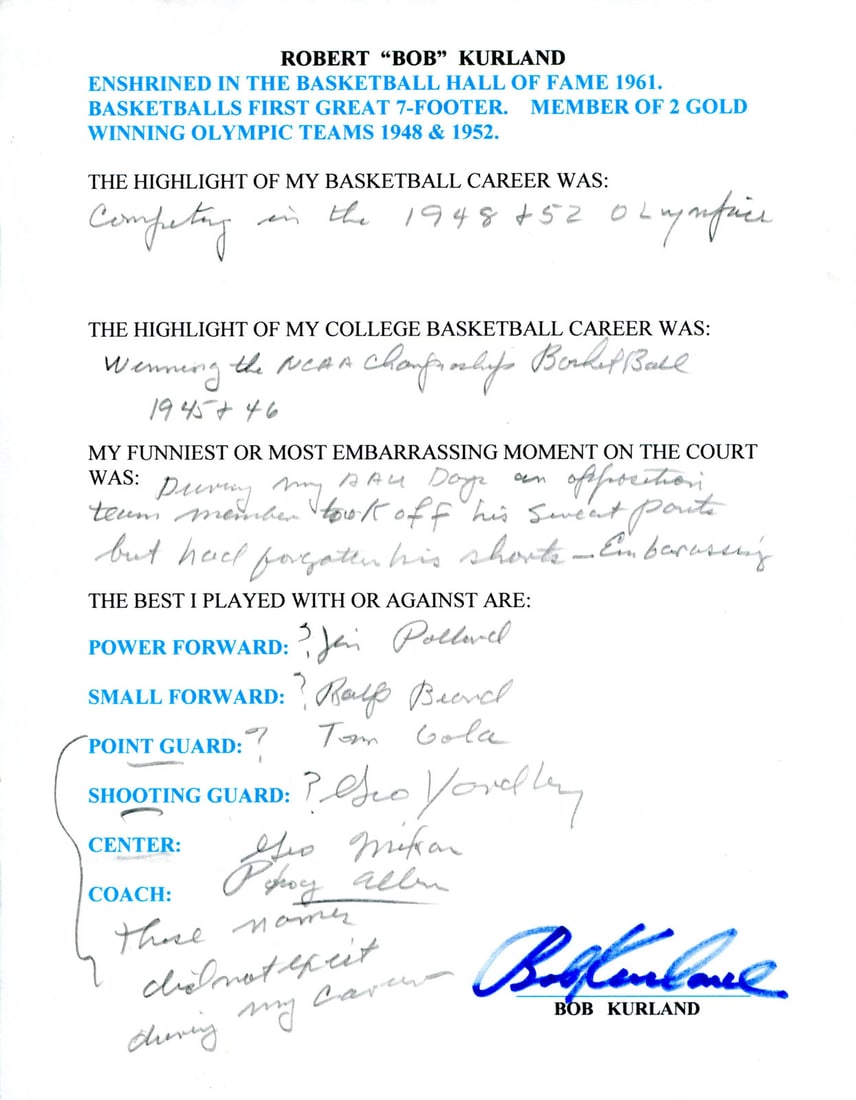 ROBERT “BOB” KURLAND
ENSHRINED IN THE BASKETBALL HALL OF FAME 1961.
BASKETBALLS FIRST GREAT 7-FOOTER. MEMBER OF 2 GOLD
WINNING OLYMPIC TEAMS 1948 & 1952.
THE HIGHLIGHT OF MY BASKETBALL CAREER WAS:
Competing in the 1948 + 52 Olympics
THE HIGHLIGHT OF MY COLLEGE BASKETBALL CAREER WAS:
Winning the NCAA Championships BasketBall
1945 + 46
MY FUNNIEST OR MOST EMBARRASSING MOMENT ON THE COURT
WAS: During my AAU Days an opposition
team member took off his sweat pants
but had forgotten his shorts - Embarassing
THE BEST I PLAYED WITH OR AGAINST ARE:
POWER FORWARD: ? Jim Pollard
SMALL FORWARD: ? Ralf Beard
POINT GUARD: ? Tom Gola
SHOOTING GUARD: ? Geo Yardley
CENTER: Geo Mikan
COACH: Phog Allen
those names
did not exist
during my career
Bob Kurland
BOB KURLAND